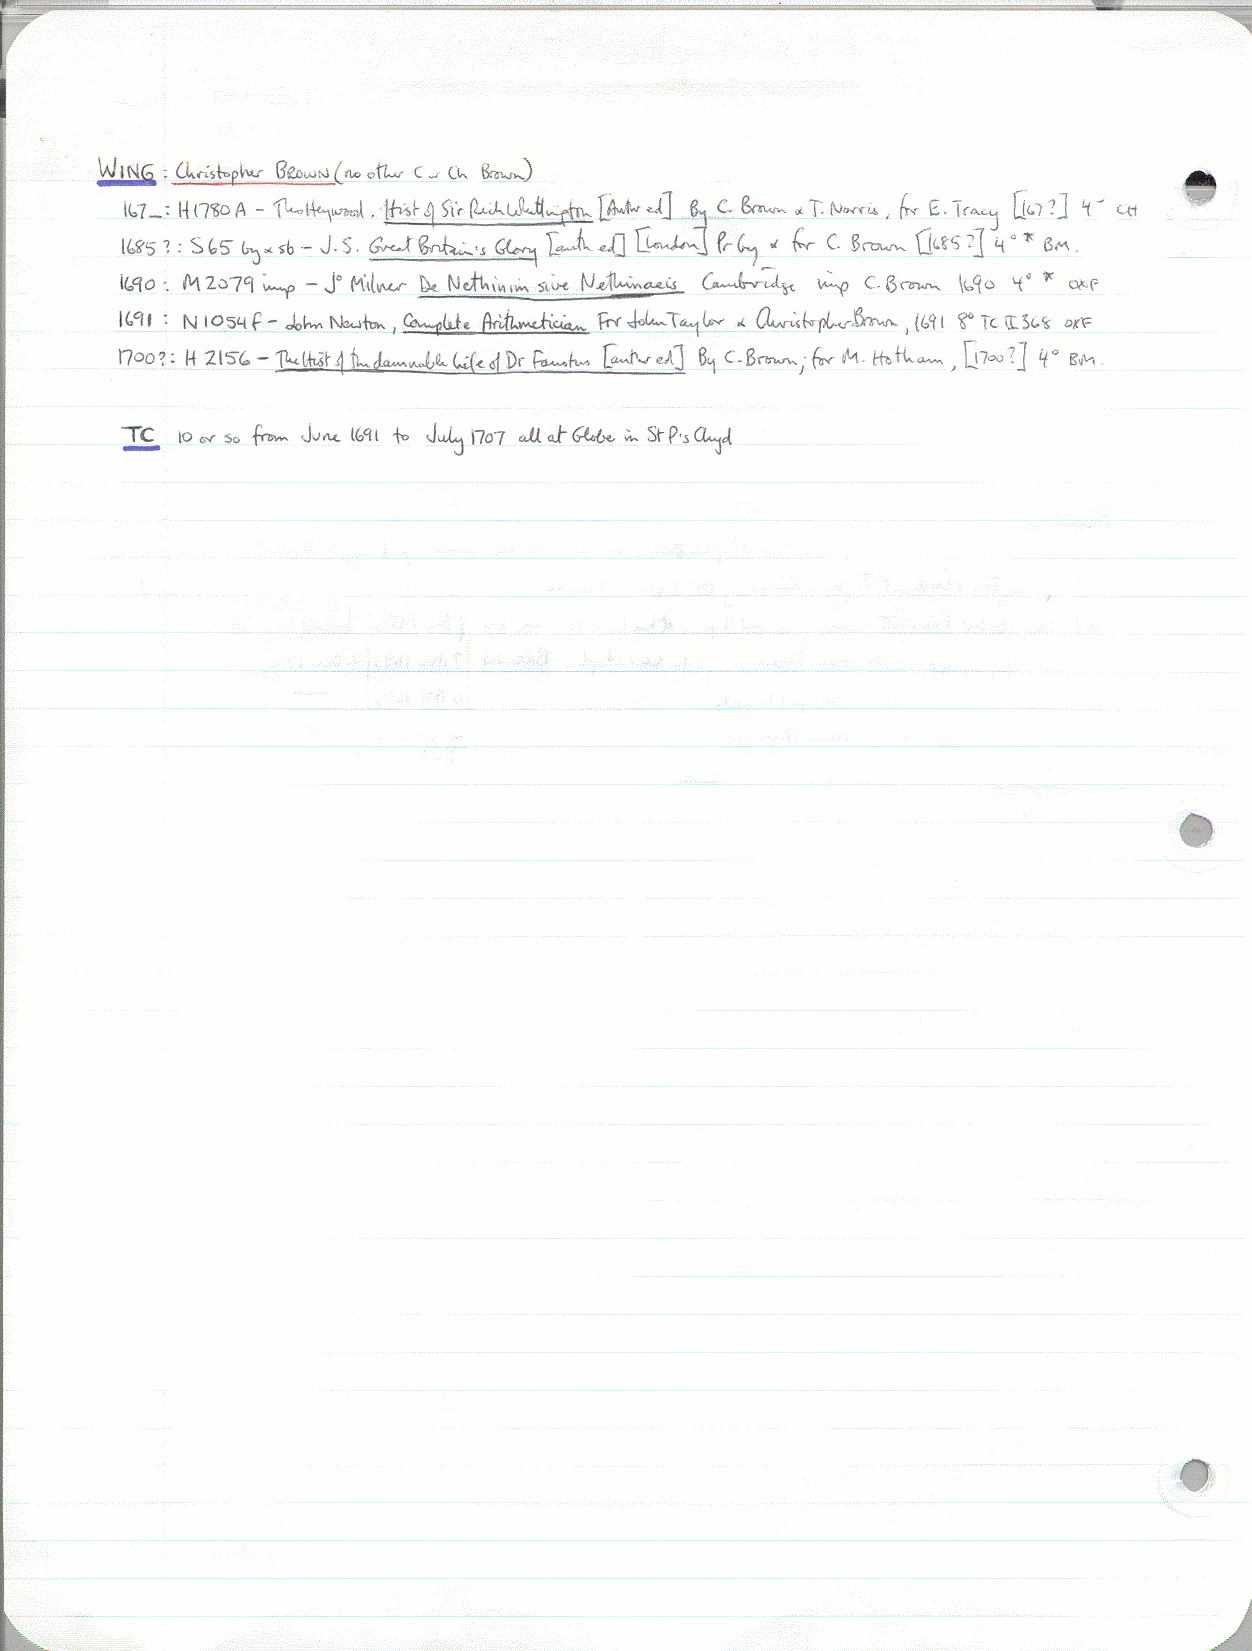 WING : Christopher BROWN (no other C or Ch Brown)
167_: H1780A - Tho Heywood. Hist of Sir Rich Whittington [Anthr ed] By C. Brown & T. Norris, for E. Tracy [167?] 4° CH
1685?: S65 by & sb - J.S. Great Britain's Glory [anthr ed] [London] Pr by & for C. Brown [1685?] 4° * BM.
1690: M2079 imp - J° Milner De Nethinim sive Nethinaeis Cambridge imp C. Brown 1690 4° * OXF
1691 : N1054f - John Newton, Complete Arithmetician For John Taylor & Christopher Brown, 1691 8° TC II 368 OXF
1700?: H 2156 - The Hist of the damnable life of Dr Faustus [anthr ed] By C. Brown; for M. Hotham, [1700?] 4° BM.
TC 10 or so from June 1691 to July 1707 all at Globe in St P's Chyd